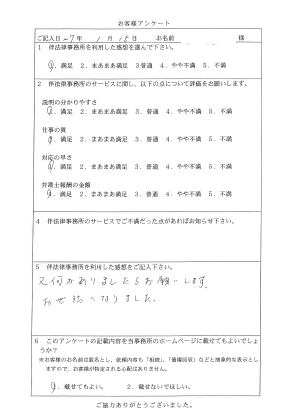 お客様アンケート
ご記入日 27年 1月 15日 お名前 様
1 伴法律事務所を利用した感想を選んで下さい。
1．満足 2．まあまあ満足 3 普通 4．やや不満 5．不満
2 伴法律事務所のサービスに関し、以下の点について評価をお願いします。
説明の分かりやすさ
1．満足 2．まあまあ満足 3．普通 4．やや不満 5．不満
仕事の質
1．満足 2．まあまあ満足 3．普通 4．やや不満 5．不満
対応の早さ
1．満足 2．まあまあ満足 3．普通 4．やや不満 5．不満
弁護士報酬の金額
1．満足 2．まあまあ満足 3．普通 4．やや不満 5．不満
4 伴法律事務所のサービスでご不満だった点があればお知らせ下さい。
5 伴法律事務所を利用した感想をご記入下さい。
又何かありましたらお願いします。
お世話になりました。
6 このアンケートの記載内容を当事務所のホームページに載せてもよいでしょ
うか？
※お客様のお名前は匿名とし、依頼内容も「相続」、「債権回収」などと抽象的な表示とし
ますので、お客様が特定される心配はありません。
1．載せてもよい。 2．載せないでほしい。
ご協力ありがとうございました。